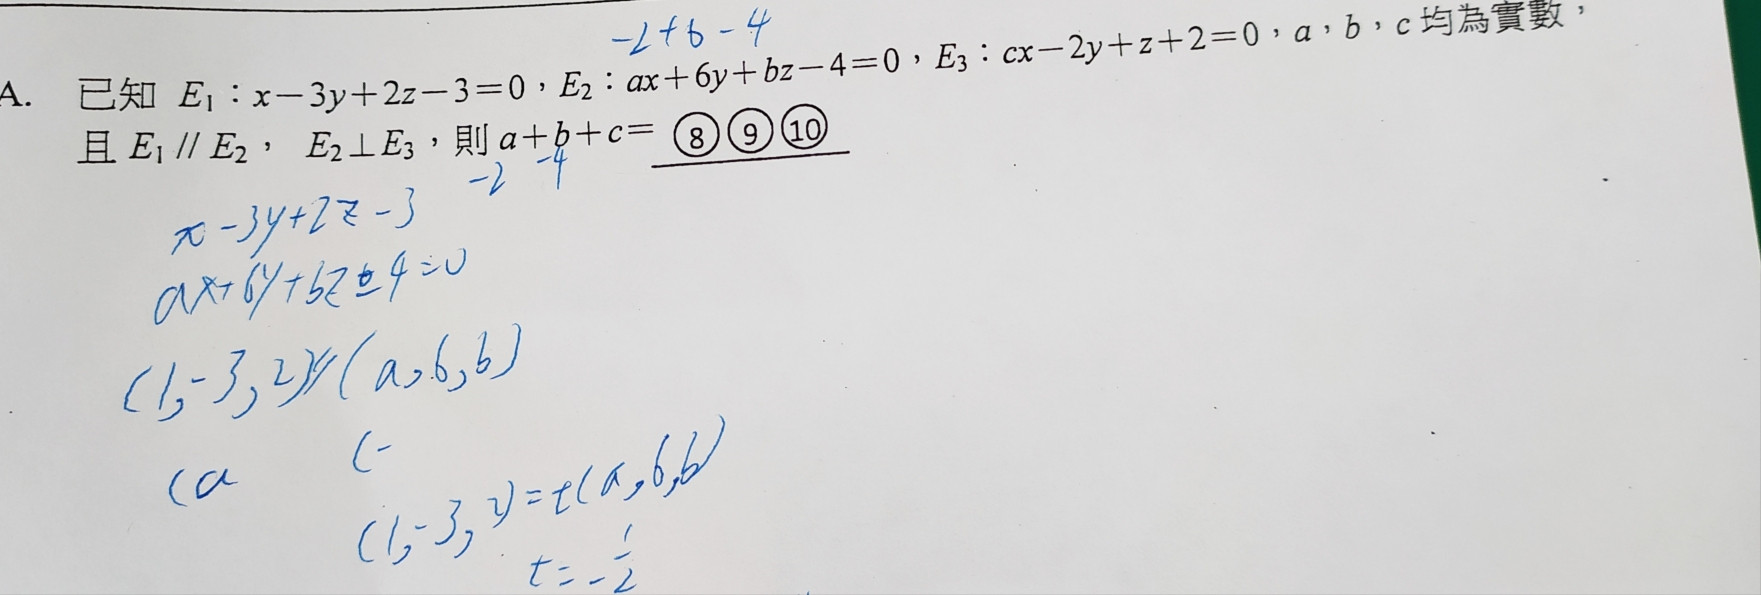 -2+6-4
A. 已知 E₁：x－3y＋2z－3＝0，E₂：ax＋6y＋bz－4＝0，E₃：cx－2y＋z＋2＝0，a，b，c 均為實數，
且 E₁ // E₂， E₂⊥E₃，則 a＋b＋c＝ ⑧⑨⑩
-2 -4
x-3y+2z-3
ax+6y+bz 4=0
(1,-3,2)//(a,6,b)
(a (-
(1,-3,2)=t(a,6,b)
t=-1/2